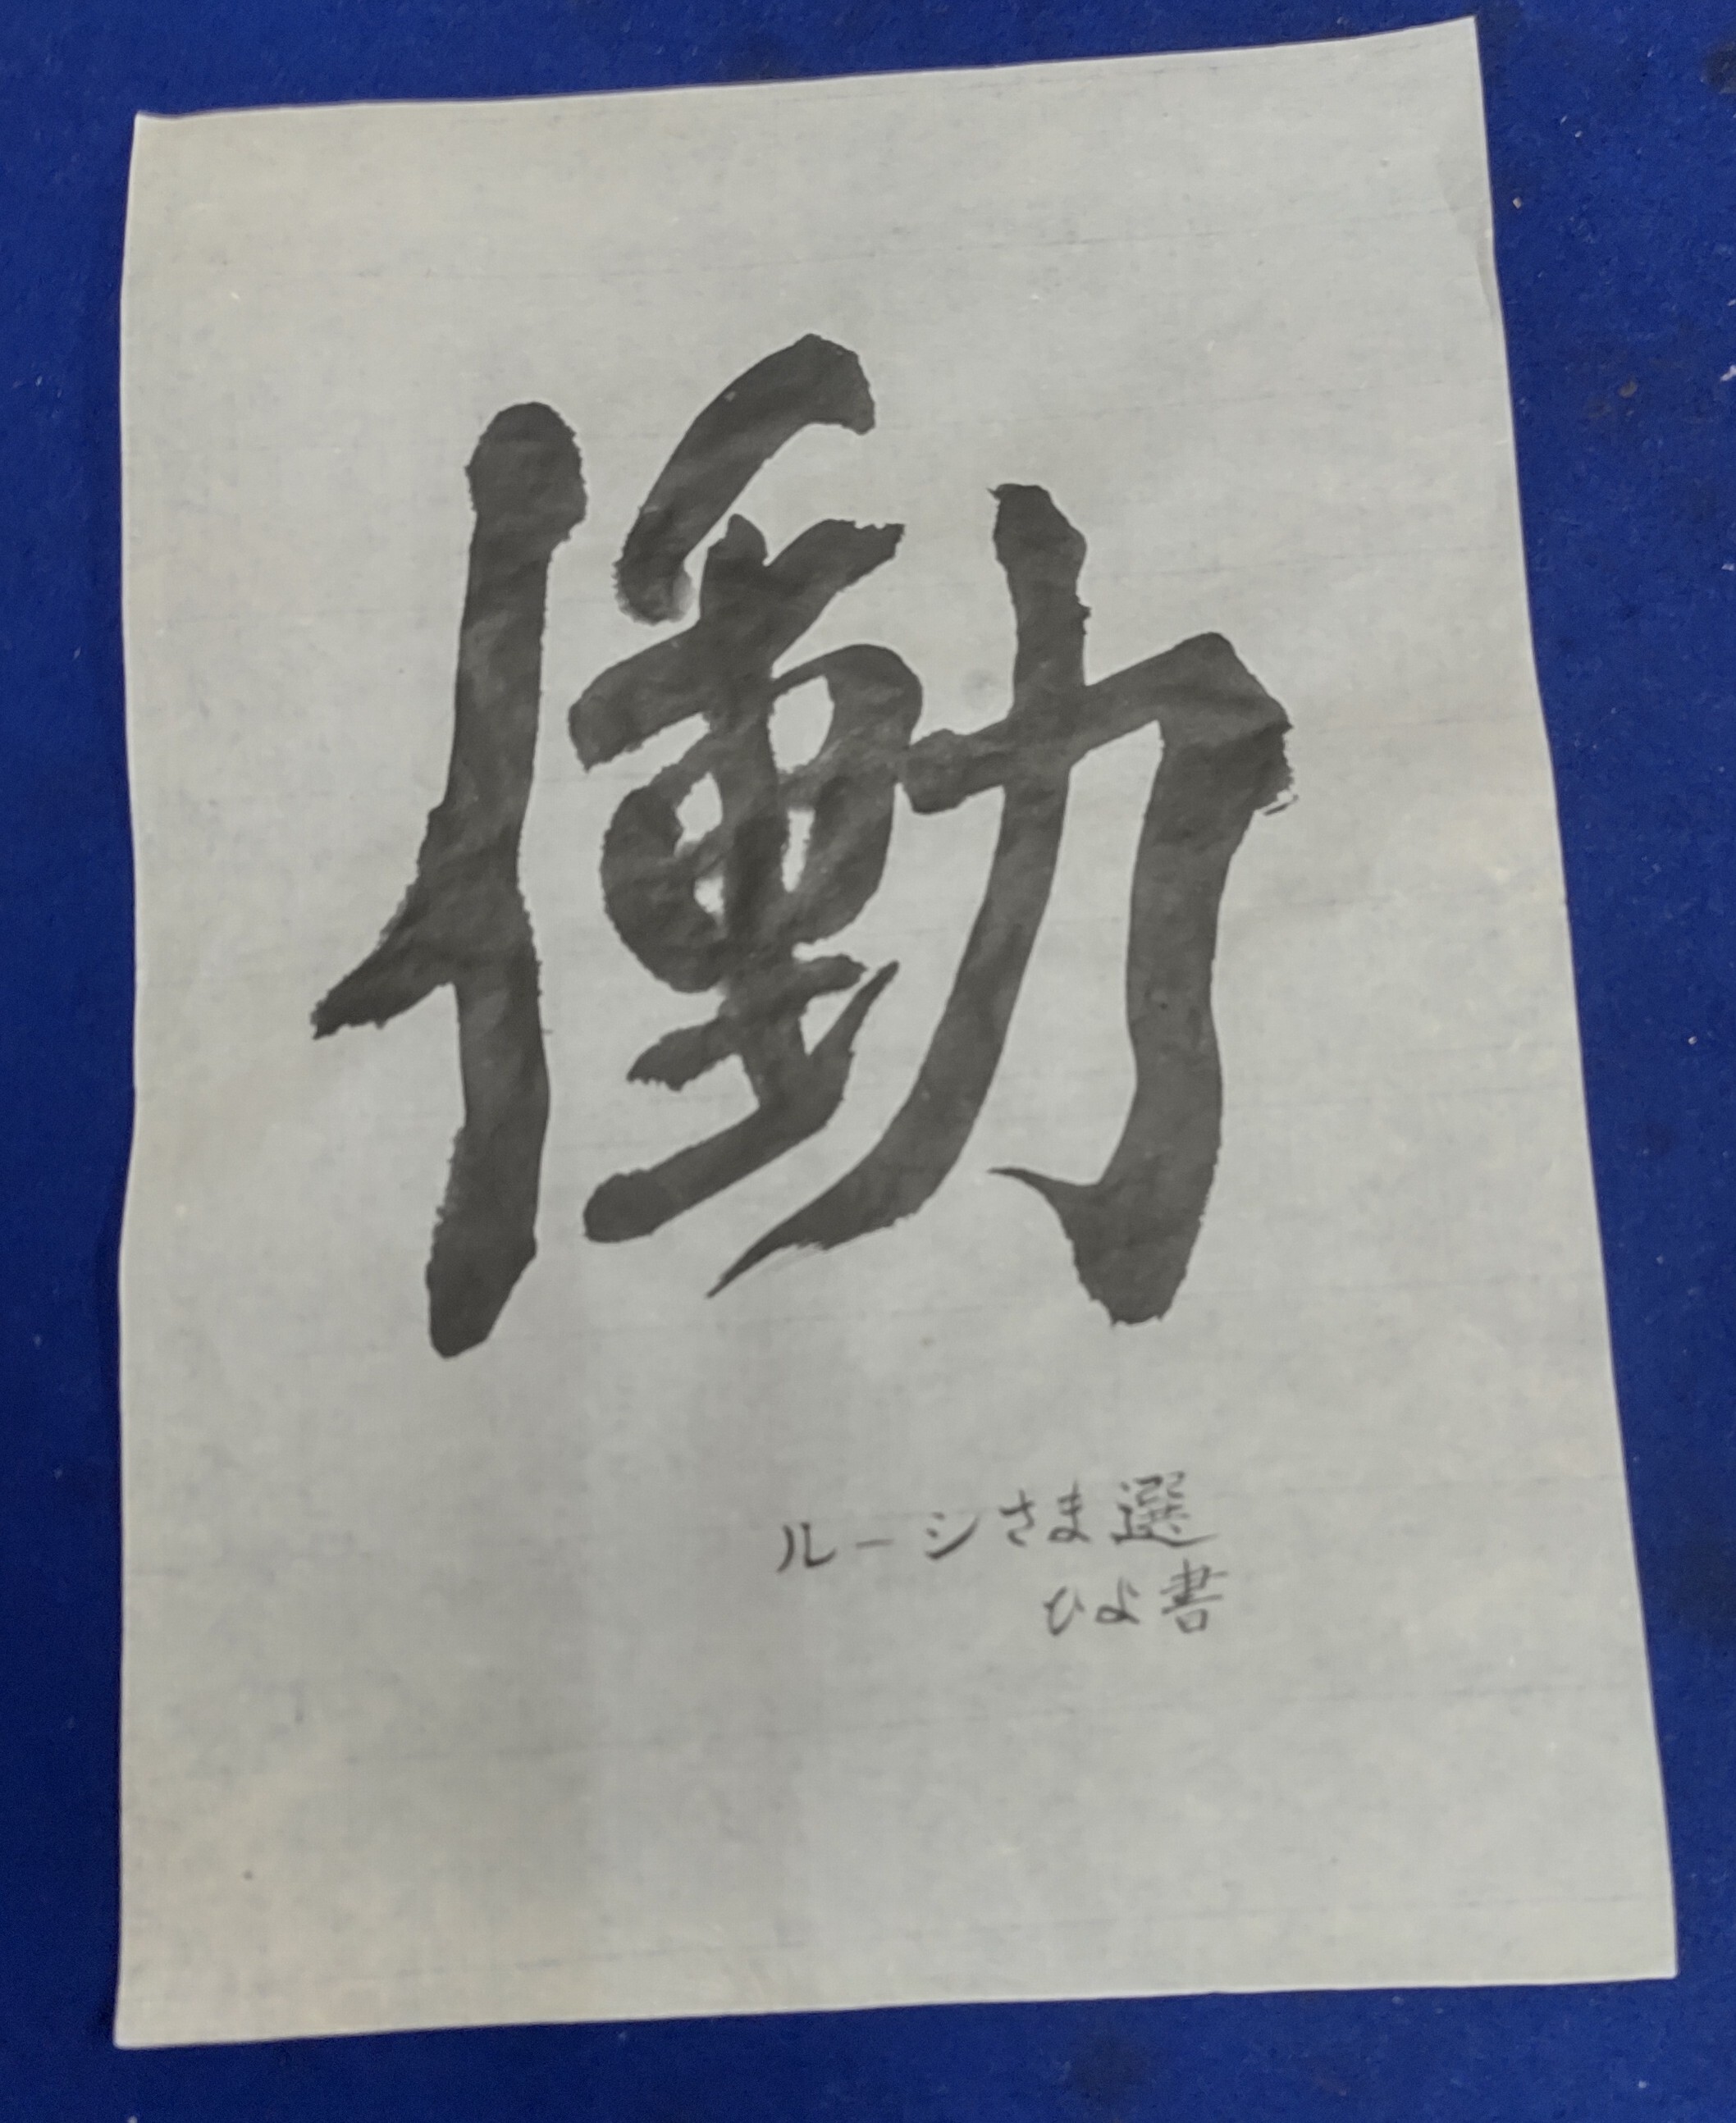 働
ルーシさま選
ひよ書